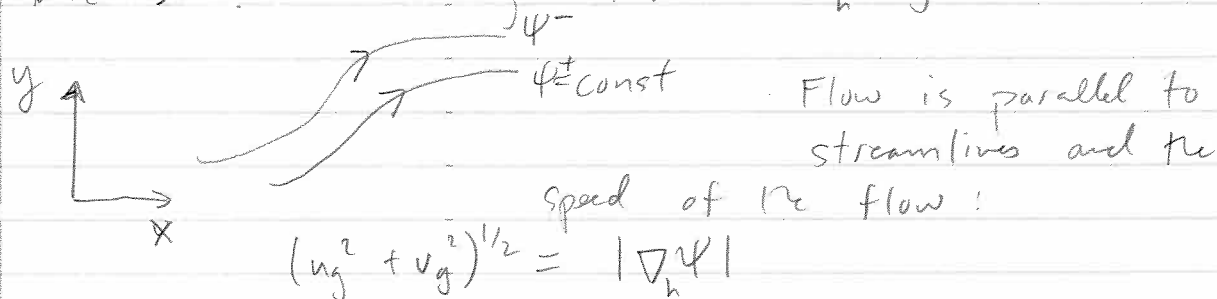 ψ-
y
ψ^+ = const
Flow is parallel to
streamlines and the
speed of the flow :
x
(u_g^2 + v_g^2)^{1/2} = |∇_h ψ|